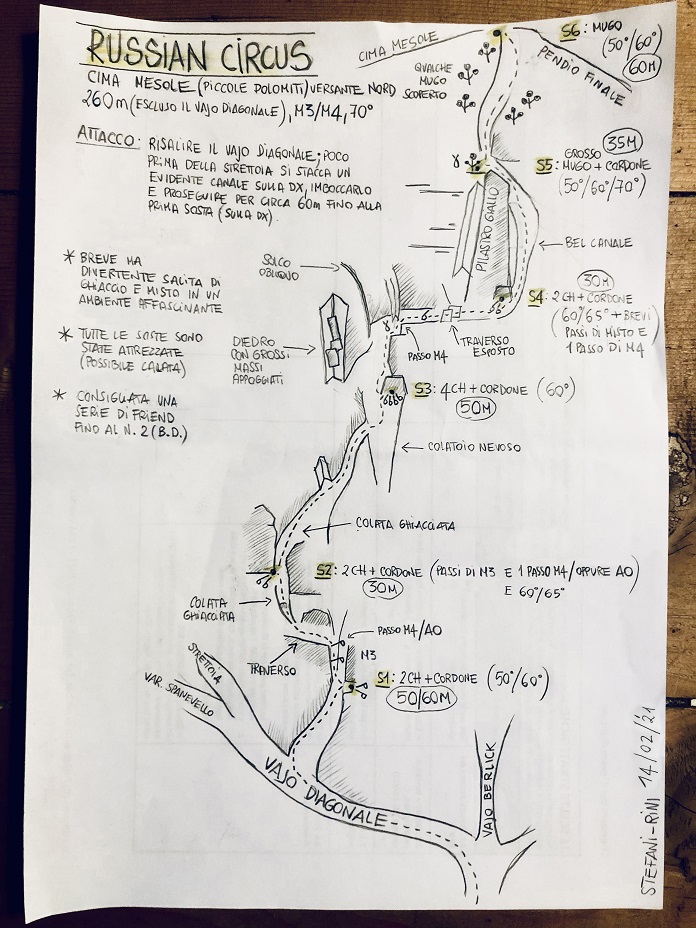 RUSSIAN CIRCUS
CIMA MESOLE (PICCOLE DOLOMITI) VERSANTE NORD
260m (ESCLUSO IL VAJO DIAGONALE), M3/M4, 70°
ATTACCO: RISALIRE IL VAJO DIAGONALE; POCO
PRIMA DELLA STRETTOIA SI STACCA UN
EVIDENTE CANALE SULLA DX, IMBOCCARLO
E PROSEGUIRE PER CIRCA 60m FINO ALLA
PRIMA SOSTA (SULLA DX).
* BREVE MA
DIVERTENTE SALITA DI
GHIACCIO E MISTO IN UN
AMBIENTE AFFASCINANTE
* TUTTE LE SOSTE SONO
STATE ATTREZZATE
(POSSIBILE CALATA)
* CONSIGLIATA UNA
SERIE DI FRIEND
FINO AL N. 2 (B.D.)
CIMA MESOLE
S6: MUGO
(50°/60°)
60M
PENDIO FINALE
QUALCHE
MUGO
SCOPERTO
35M
S5: GROSSO
MUGO + CORDONE
(50°/60°/70°)
PILASTRO GIALLO
BEL CANALE
30M
S4: 2 CH + CORDONE
(60°/65° + BREVI
PASSI DI MISTO E
1 PASSO DI M4)
SOLCO
OBLIQUO
TRAVERSO
ESPOSTO
PASSO M4
DIEDRO
CON GROSSI
MASSI
APPOGGIATI
S3: 4 CH + CORDONE (60°)
50M
COLATOIO NEVOSO
COLATA GHIACCIATA
S2: 2 CH + CORDONE (PASSI DI M3 E 1 PASSO M4/OPPURE A0)
30M
E 60°/65°
COLATA
GHIACCIATA
PASSO M4/A0
M3
TRAVERSO
S1: 2 CH + CORDONE (50°/60°)
50/60M
STRETTOIA
VAR. SPANEVELLO
VAJO DIAGONALE
VAJO BERLICK
STEFANI-RINI 14/02/'21